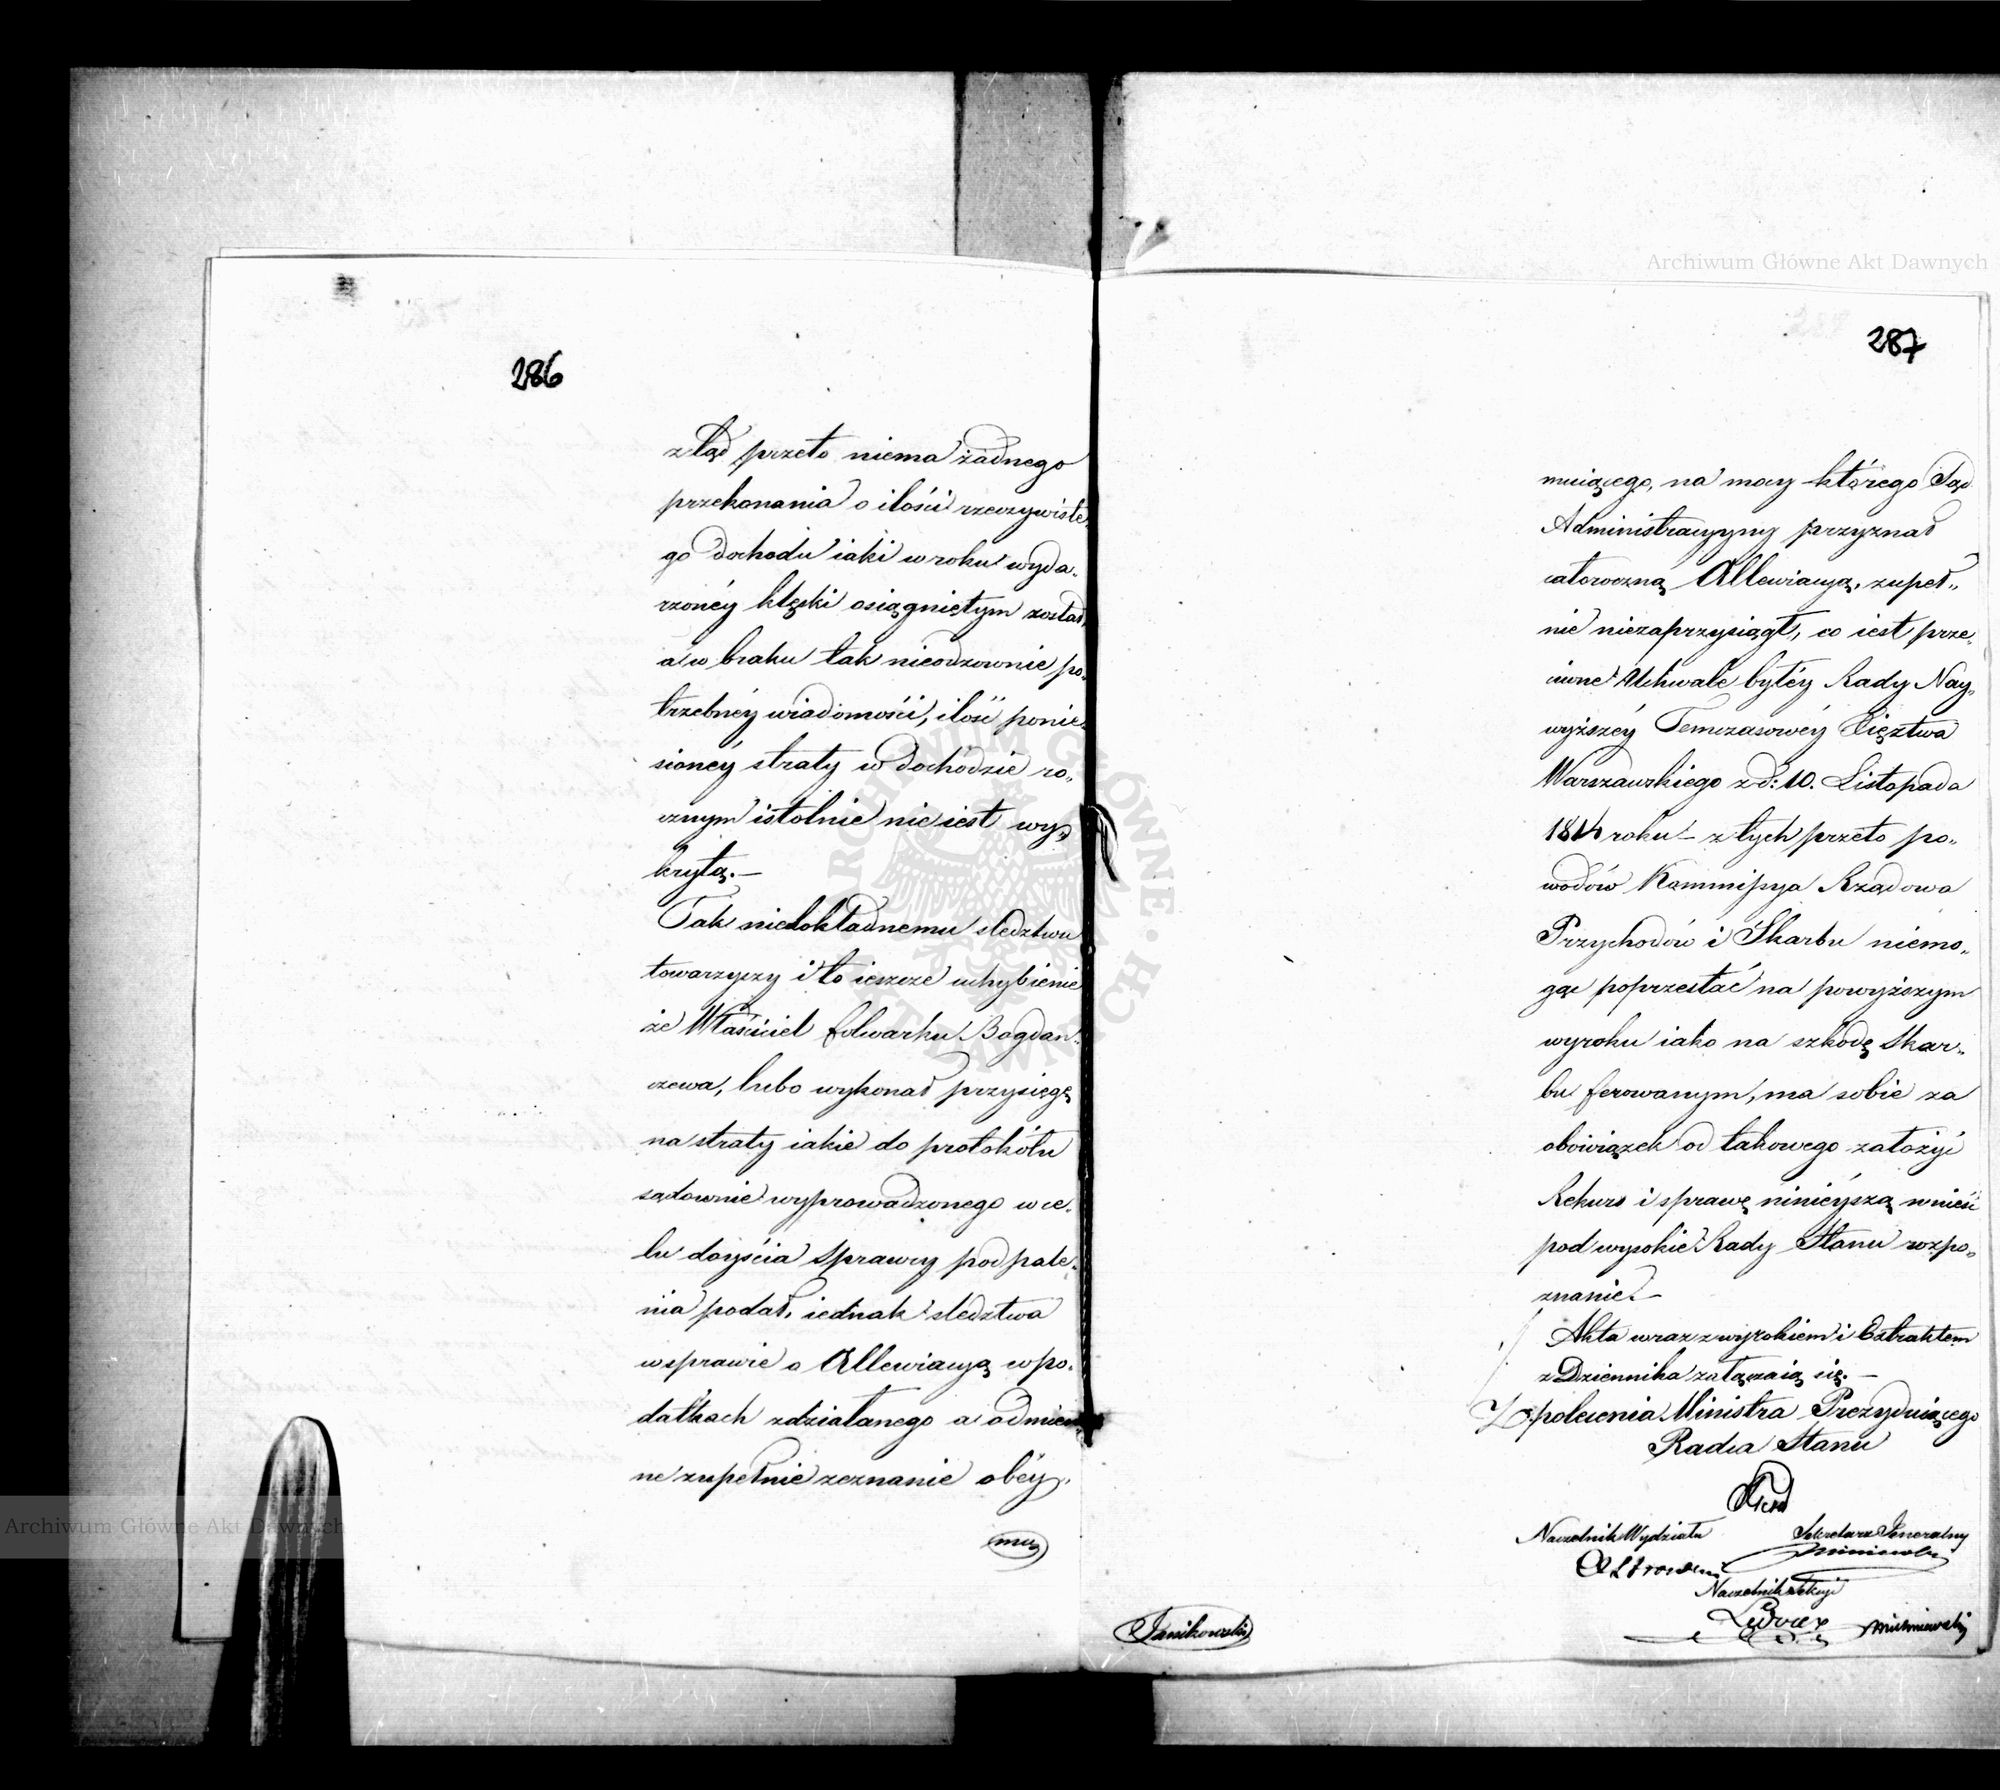 286
ztąd przeto niema żadnego
przekonania o ilości rzeczywiste„
go dochodu iaki w roku wyda„
rzonéy klęski osiągniętym został,
a w braku tak nieodzownie po„
trzebnéy wiadomości, ilość ponie„
sionéy straty w dochodzie ro„
cznym istotnie nie iest wy„
krytą.—
Tak niedokładnemu sledztwu
towarzyszy i to ieszcze uchybienie
że Właściciel folwarku Bogdan„
czewa, lubo wykonał przysięgę
na straty iakie do protokółu
sądownie wyprowadzonego w ce„
lu doyścia sprawcy podpale„
nia podał, iednak sledztwa
w sprawie o Allewiacyą w po„
datkach zdziałanego a odmien„
ne zupełnie zeznanie obéy„
mu„
287
muiącego, na mocy którego Sąd
Administracyyny przyznał
całoroczną Allewiacyą, zupeł„
nie niezaprzysiągł, co iest prze„
ciwne Uchwale byłéy Rady Nay„
wyższéy Temczasowéy Xięztwa
Warszawskiego z d: 10. Listopada
1814 roku – z tych przeto po„
wodów Kommissya Rządowa
Przychodów i Skarbu niemo„
gąc poprzestać na powyższym
wyroku iako na szkodę Skar„
bu ferowanym, ma sobie za
obowiązek od takowego założyć
Rekurs i sprawę ninieyszą wnieść
pod wysokie Rady Stanu rozpo„
znanie.—
Akta wraz z wyrokiem i Extraktem
z Dziennika załączaią się.—
Z polecenia Ministra Prezyduiącego
Radca Stanu
Naczelnik Wydziału
Sekretarz Jeneralny
Naczelnik Sekcyi
Janikowski
Archiwum Główne Akt Dawnych
Archiwum Główne Akt Dawnych
ARCHIWUM GŁÓWNE